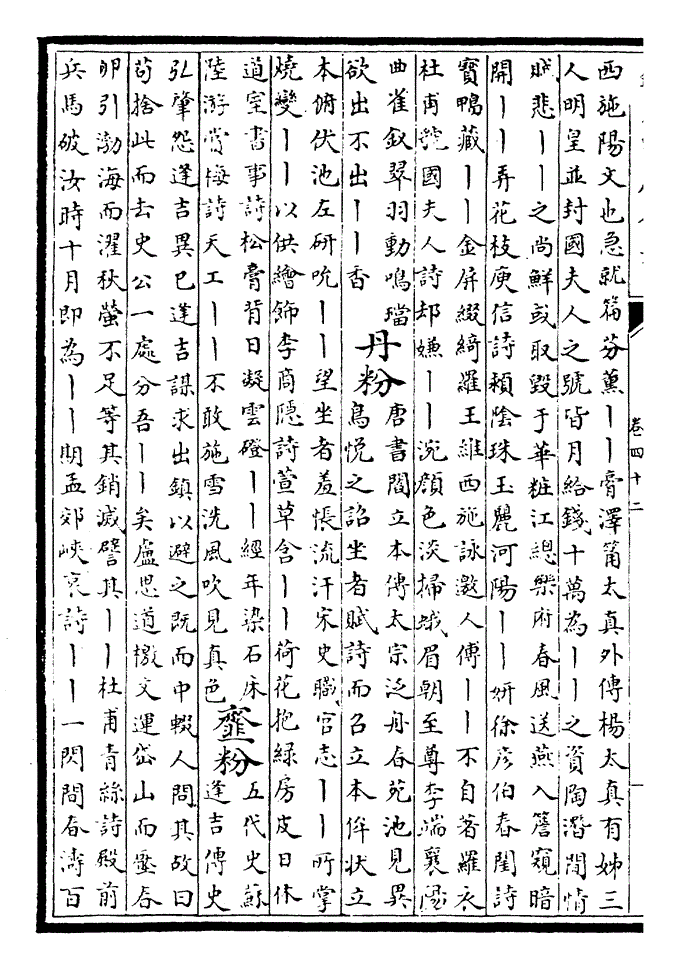 西施陽文也急就篇芬薰丨丨膏澤筩太真外傳楊太真有姊三
人明皇並封國夫人之號皆月給錢十萬為丨丨之資陶潛閒情
賦悲丨丨之尚鮮或取毀于華粧江總樂府春風送燕入簷窺暗
開丨丨弄花枝庾信詩頰陰珠玉麗河陽丨丨妍徐彥伯春閨詩
寶鴨藏丨丨金屏綴綺羅王維西施詠邀人傅丨丨不自著羅衣
杜甫虢國夫人詩却嫌丨丨涴顏色淡掃蛾眉朝至尊李端襄陽
曲雀釵翠羽動鳴璫
欲出不出丨丨香
丹粉
唐書閻立本傳太宗泛舟春苑池見異
鳥悅之詔坐者賦詩而召立本侔狀立
本俯伏池左研吮丨丨望坐者羞悵流汗宋史職官志丨丨所掌
燒變丨丨以供繪飾李商隱詩萱草含丨丨荷花抱綠房皮日休
道室書事詩松膏背日凝雲磴丨丨經年染石床
陸游賞梅詩天工丨丨不敢施雪洗風吹見真色
韲粉
五代史蘇
逢吉傳史
弘肇怨逢吉異已逢吉謀求出鎮以避之既而中輟人問其故曰
苟捨此而去史公一處分吾丨丨矣盧思道檄文運岱山而壓春
卵引渤海而濯秋螢不足等其銷滅譬其丨丨杜甫青絲詩殿前
兵馬破汝時十月即為丨丨期孟郊峽哀詩丨丨一閃間春濤百
卷四十二